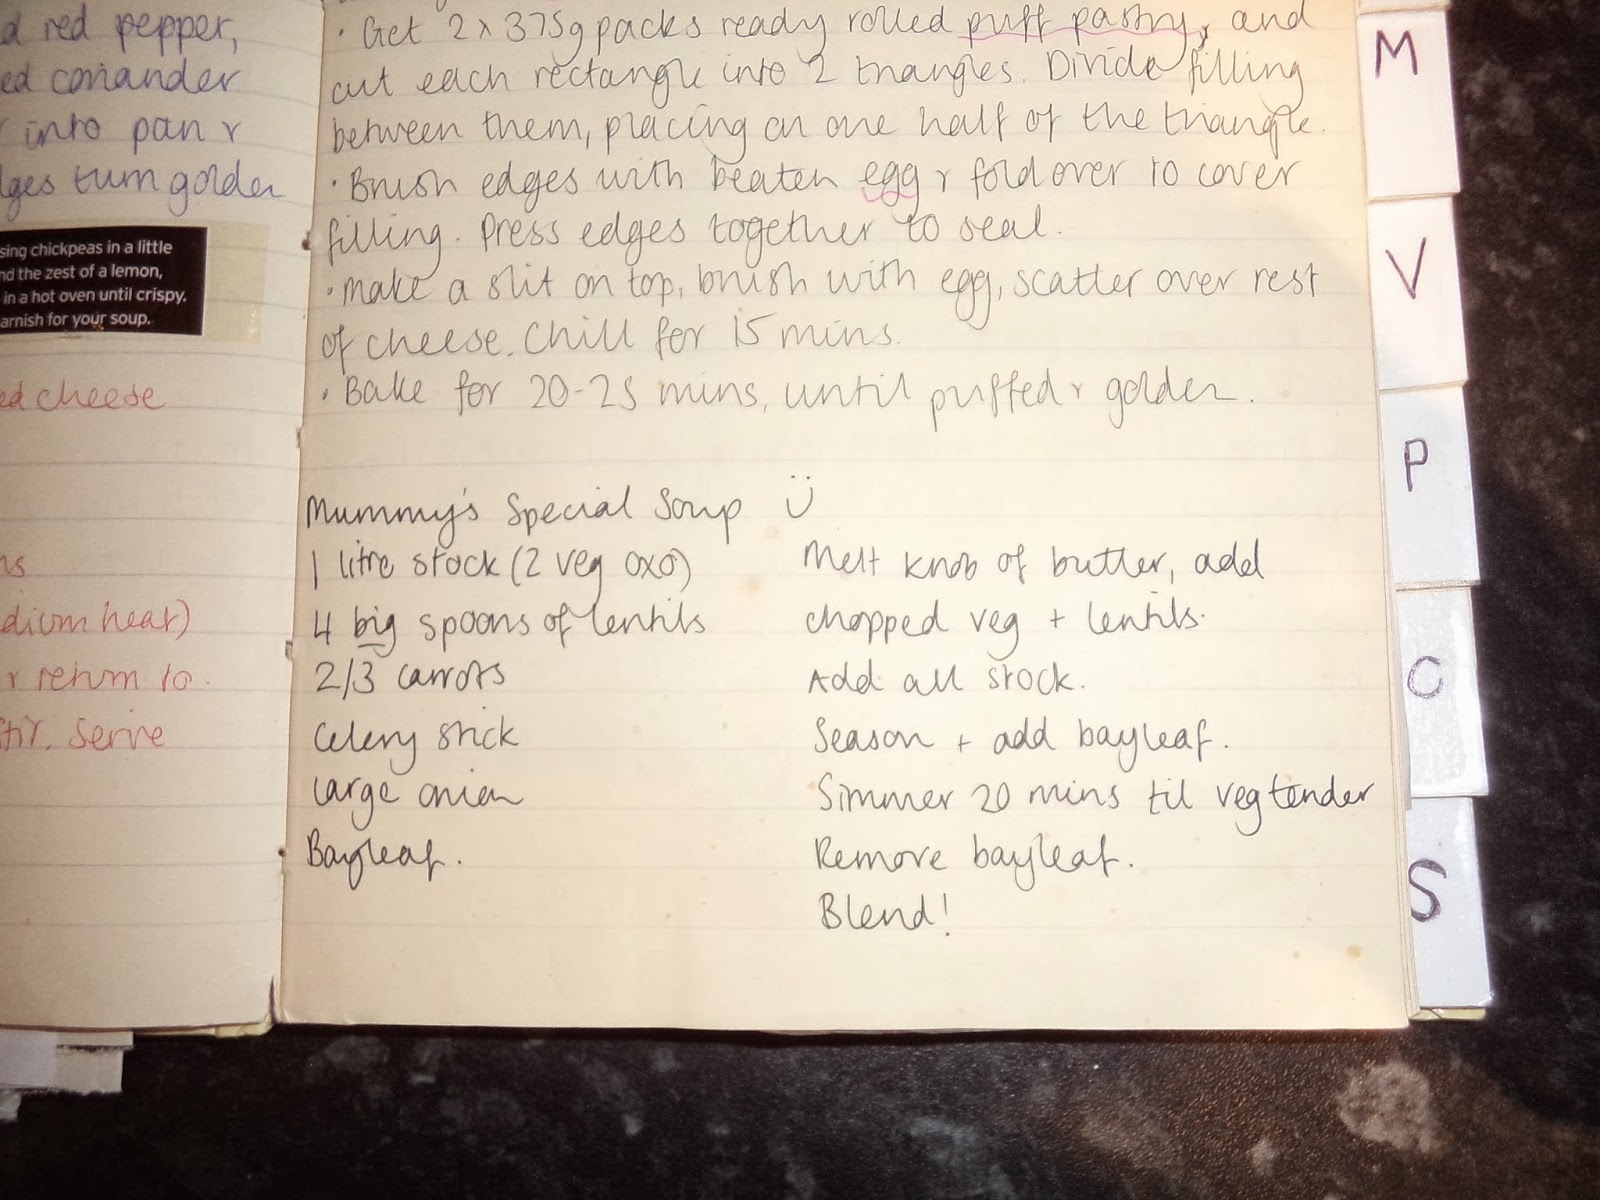 d red pepper,
ed coriander
into pan &
ges turn golden
sing chickpeas in a little
nd the zest of a lemon,
in a hot oven until crispy.
arnish for your soup.
ed cheese
ns
dium heat)
& return to
stir. Serve
· Get 2 x 375g packs ready rolled puff pastry, and
cut each rectangle into 2 triangles. Divide filling
between them, placing on one half of the triangle.
· Brush edges with beaten egg & fold over to cover
filling. Press edges together to seal.
· Make a slit on top, brush with egg, scatter over rest
of cheese. Chill for 15 mins.
· Bake for 20-25 mins, until puffed & golden.
Mummy's Special Soup Ü
1 litre stock (2 veg oxo)
4 big spoons of lentils
2/3 carrots
Celery stick
Large onion
Bayleaf.
Melt knob of butter, add
chopped veg + lentils.
Add all stock.
Season + add bayleaf.
Simmer 20 mins til veg tender
Remove bayleaf.
Blend!
M
V
P
C
S